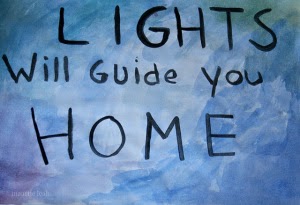 LIGHTS
Will GuiDe you
HOME